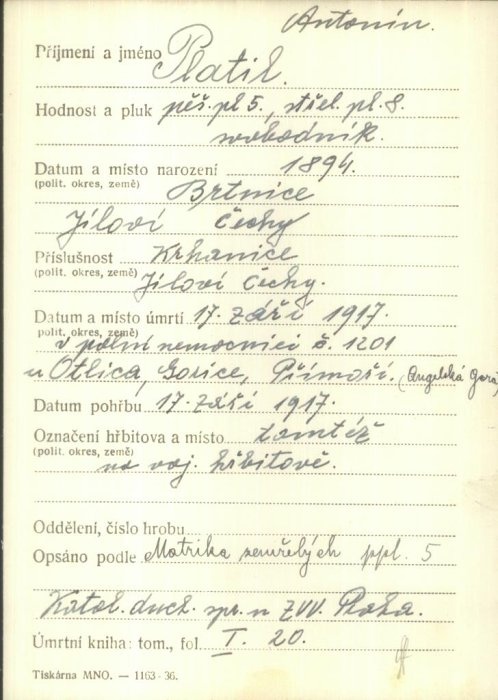 Antonín.
Příjmení a jméno Platil.
Hodnost a pluk pěš. pl 5., střel. pl. 8.
svobodník.
Datum a místo narození 1894.
(polit. okres, země) Brtnice
Jíloví Čechy
Příslušnost Krhanice
(polit. okres, země) Jíloví Čechy.
Datum a místo úmrtí 17. září 1917.
polit. okres, země)
v polní nemocnici č. 1201
u Otlica, Gorice, Přímoří. (Angelská Gora)
Datum pohřbu 17. září 1917.
Označení hřbitova a místo tamtéž
(polit. okres, země) na voj. hřbitově.
Oddělení, číslo hrobu
Opsáno podle Matrika zemřelých ppl. 5
Katol. duch. spr. u ZVV. Praha.
Úmrtní kniha: tom., fol. I. 20.
Tiskárna MNO. — 1163-36.